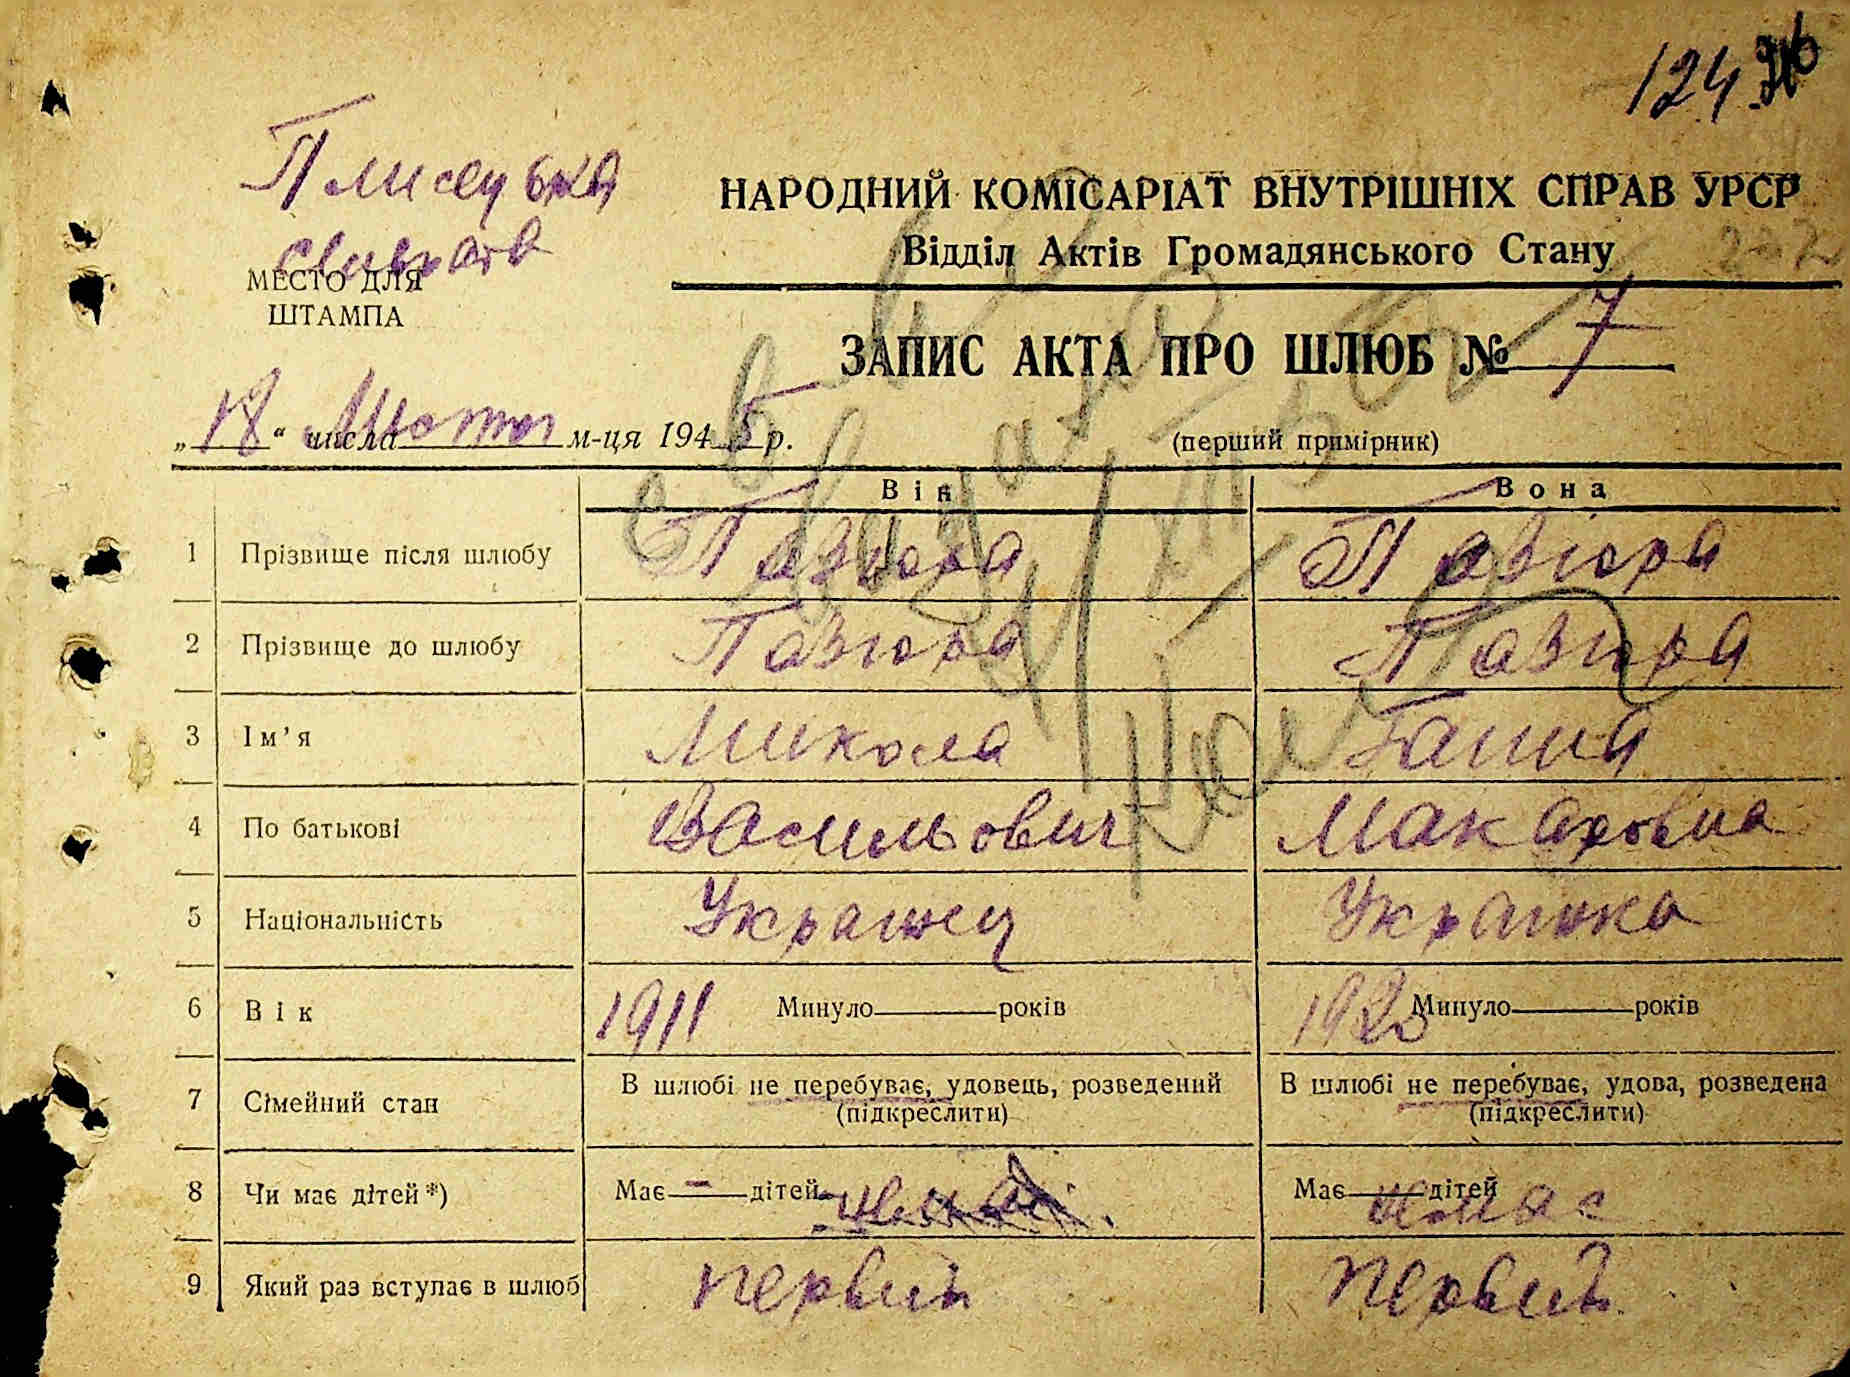 124
Плисецька
сільрада
МЕСТО ДЛЯ
ШТАМПА
НАРОДНИЙ КОМІСАРІАТ ВНУТРІШНІХ СПРАВ УРСР
Відділ Актів Громадянського Стану
ЗАПИС АКТА ПРО ШЛЮБ № 7
„18“ числа Лютог м-ця 1945 р.
(перший примірник)
Він Вона
1 Прізвище після шлюбу Павюра Павюра
2 Прізвище до шлюбу Павюра Павюра
3 Ім’я Микола Ганна
4 По батькові Васильович Макаровна
5 Національність Українец Українка
6 Вік 1911 Минуло років 1920 Минуло років
7 Сімейний стан В шлюбі не перебуває, удовець, розведений В шлюбі не перебуває, удова, розведена
(підкреслити) (підкреслити)
8 Чи має дітей*) Має — дітей Має дітей немає
9 Який раз вступає в шлюб первий первий